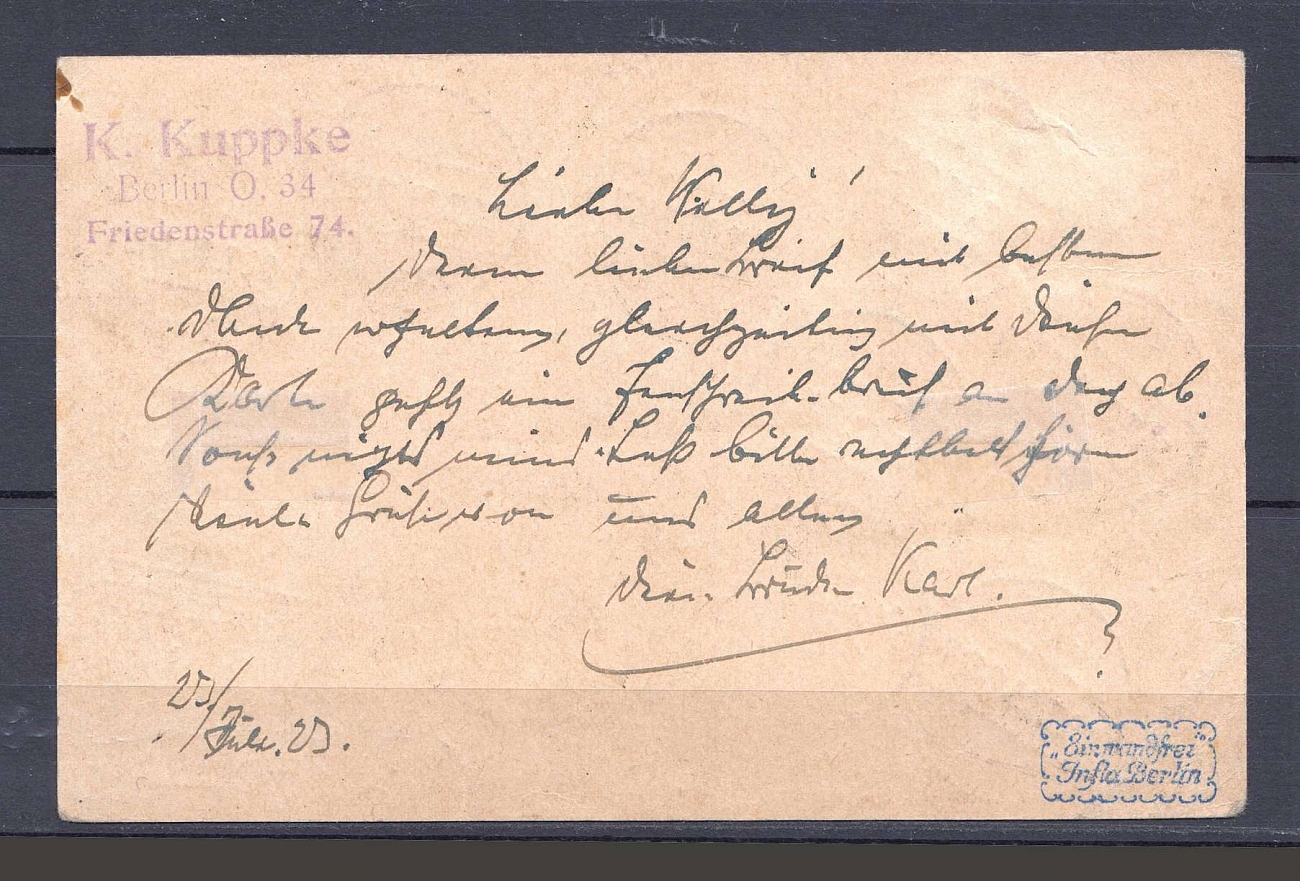 K. Kuppke
Berlin O. 34
Friedenstraße 74.
Lieber Willy!
Deinen lieben Brief mit bestem
Dank erhalten, gleichzeitig mit dieser
Karte geht ein Einschreib-brief an Dich ab.
Sonst nichts neues. Laß bitte recht bald hören
Viele Grüße von uns allen
Dein Bruder Karl.
23/
Juli. 23.
„Einwandfrei"
Infla Berlin